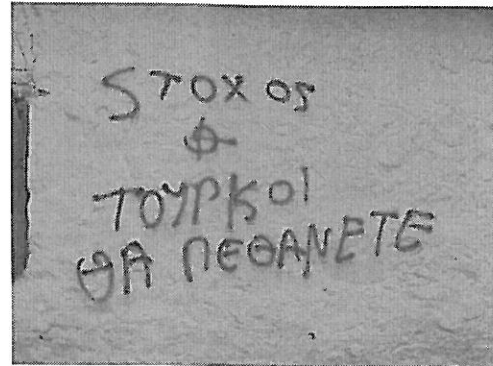 STOXOS
ΤΟΥΡΚΟΙ
ΘΑ ΠΕΘΑΝΕΤΕ